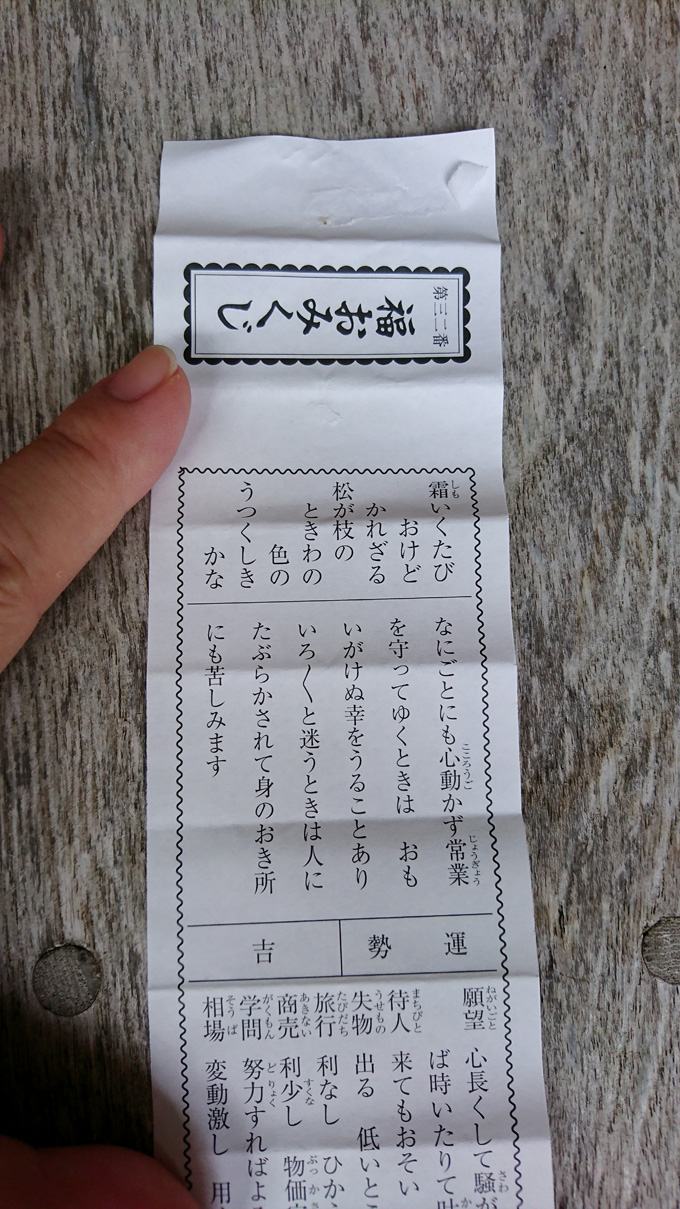 第三二番
福おみくじ
霜いくたび
おけど
かれざる
松が枝の
ときわの
色の
うつくしき
かな
なにごとにも心動かず常業
を守ってゆくときは おも
いがけぬ幸をうることあり
いろ〱と迷うときは人に
たぶらかされて身のおき所
にも苦しみます
運勢
吉
願望 心長くして騒が
ば時いたりて叶
待人 来てもおそい
失物 出る 低いとこ
旅行 利なし ひかえ
商売 利少し 物価
学問 努力すればよ
相場 変動激し 用